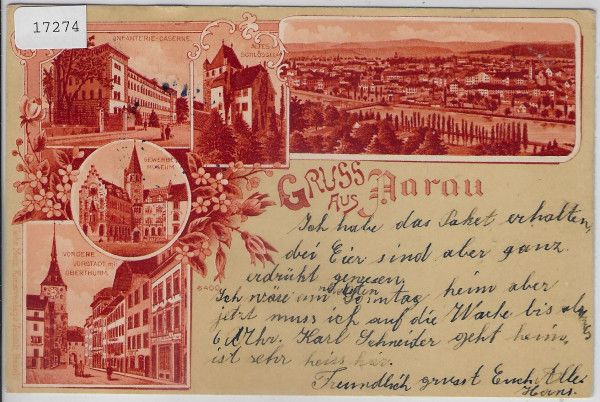 17274
INFANTERIE-CASERNE.
ALTES
SCHLÖSSLI
GEWERBE
MUSEUM
GRUSS
AUS Aarau
VORDERE
VORSTADT MIT
OBERTHURM.
6400
Ich habe das Paket erhalten,
bei Eier sind aber ganz.
erdrüht gewesen,
Ich wäre am Sonntag heim aber
jetzt muss ich auf die Wache bis
6 Uhr. Karl Schneider geht heim,
ist sehr heiss hier.
Freundlich grüsst Euch Alle
Hans.